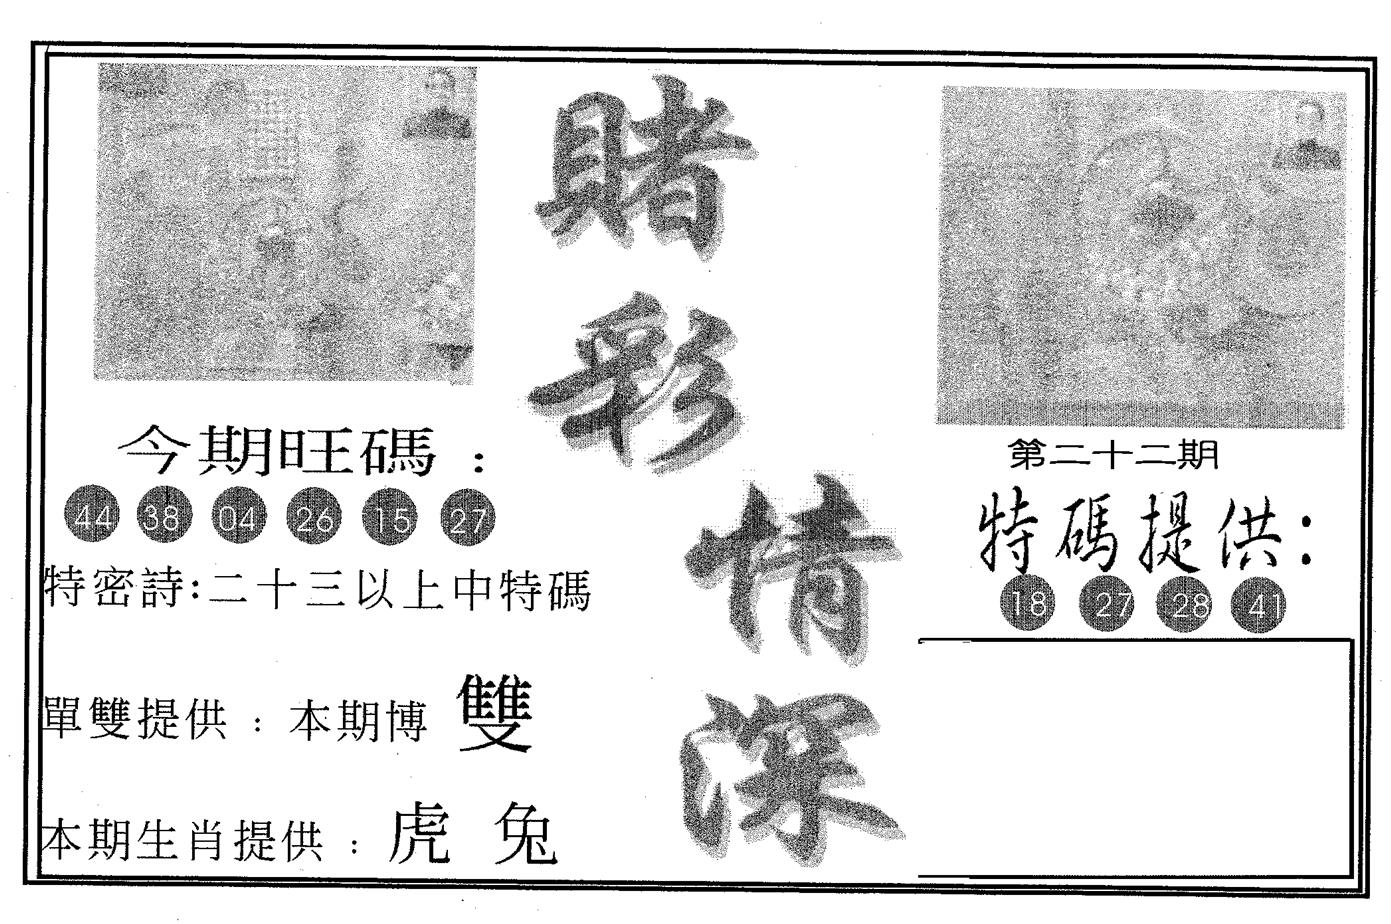 賭彩情深
今期旺碼：
44 38 04 26 15 27
特密詩:二十三以上中特碼
單雙提供：本期博 雙
本期生肖提供：虎 兔
第二十二期
特碼提供：
18 27 28 41